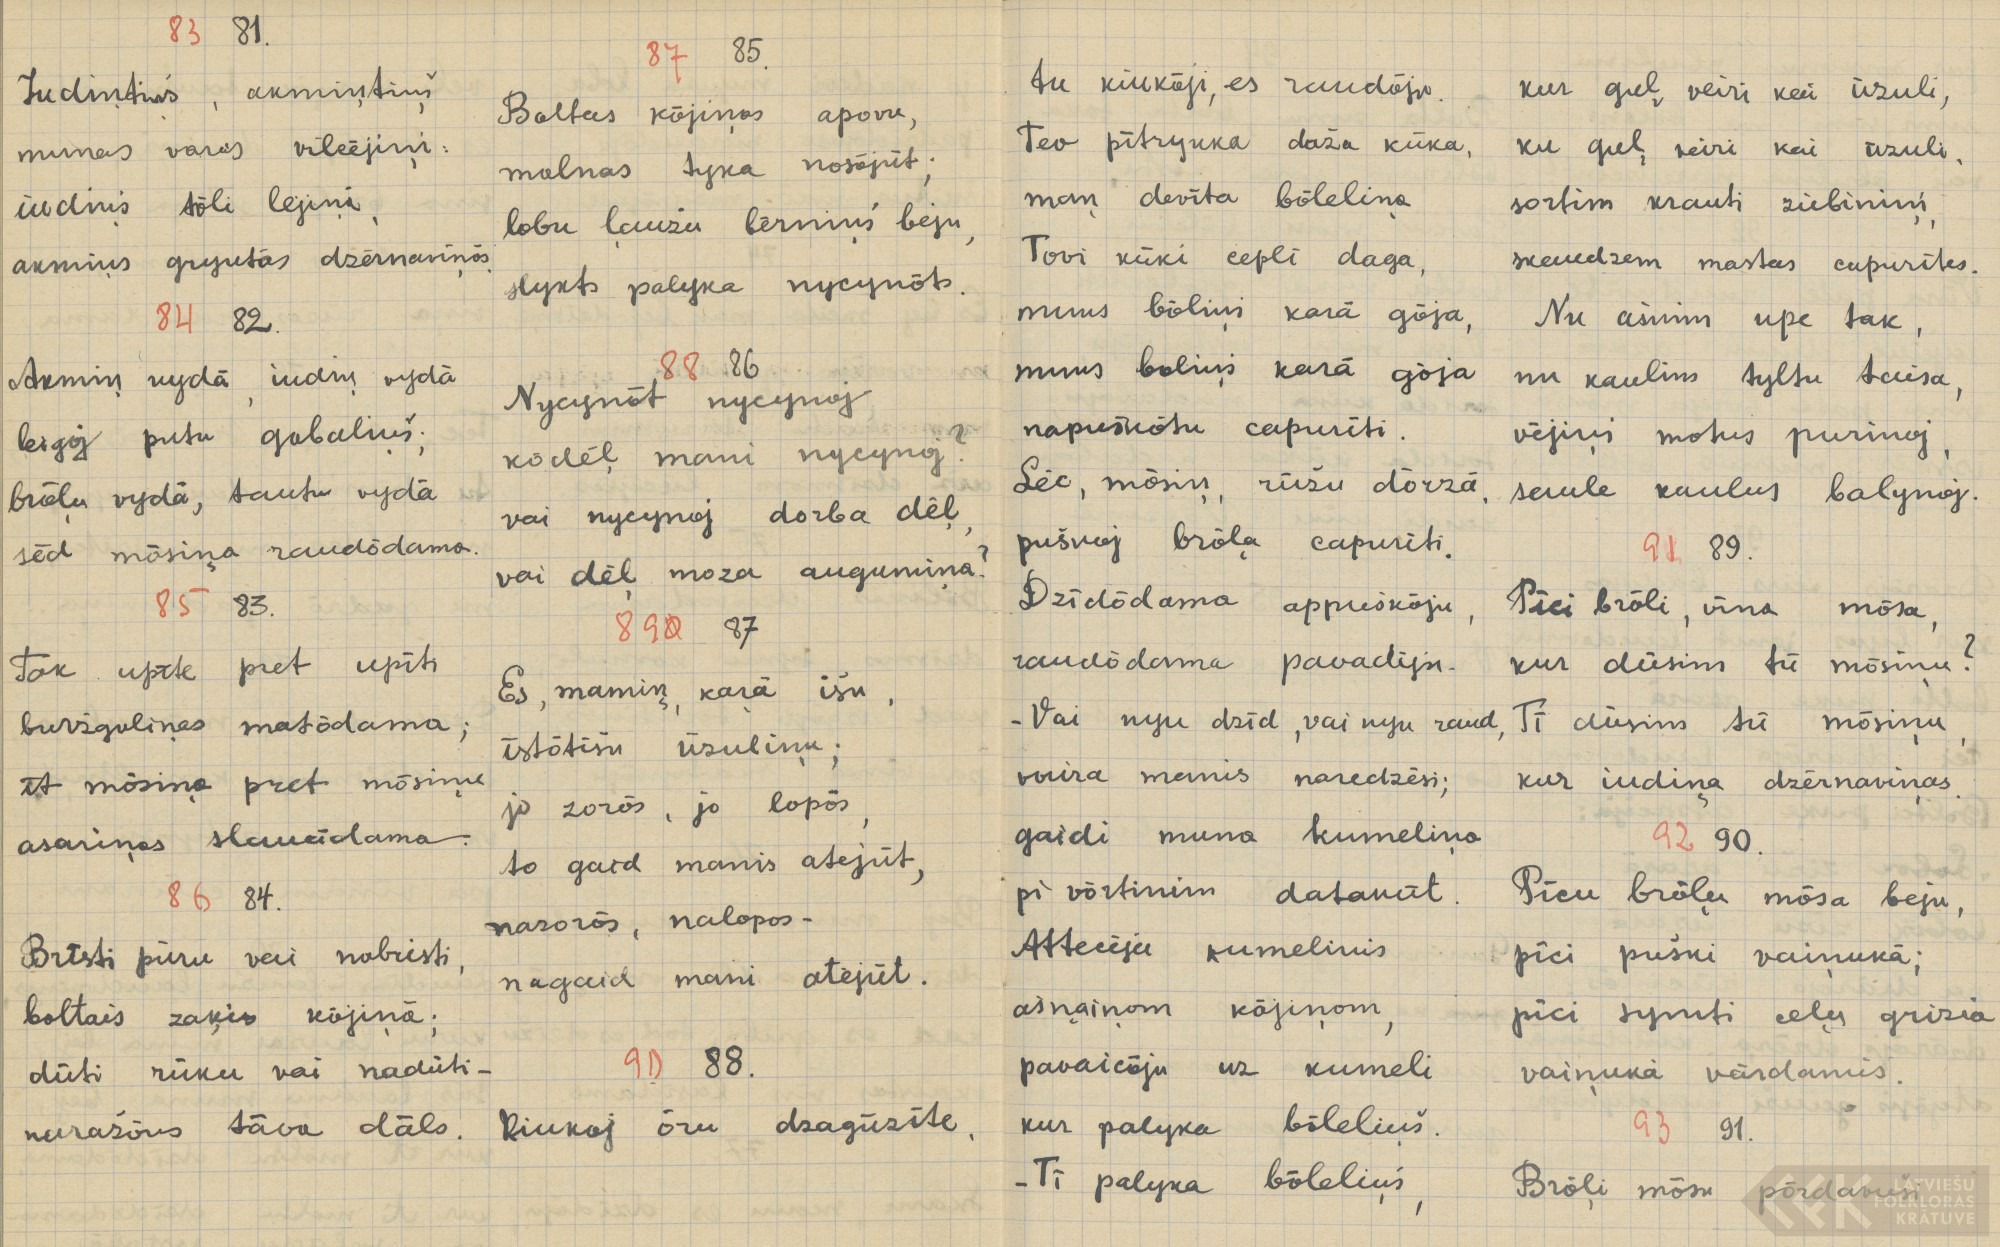 83 81.
Iudiņtiņš, akmiņtiņš
munas varas vīlcējiņi:
iudiņs tōli lejiņā,
akmiņs gryutās dzērnaviņōs.
84 82.
Akmiņ vydā, iudiņ vydā
leigōj putu gobaliņš;
brōļu vydā, tautu vydā
sēd mōsiņa raudōdama.
85 83.
Tak upīte pret upīti
burzguliņas matōdama;
īt mōsiņa pret mōsiņu
asariņas slaucīdama.
86 84.
Bristi pūru vai nabristi,
boltais zaķis kōjiņā;
dūti rūku vai nadūti-
nuražōns tāva dāls.
87 85.
Boltas kōjiņas apovu,
molnas tyka nosōjūt;
lobu ļaužu bērniņš beju,
slykts palyka nycynōts.
88 86
Nycynōt nycynoj
kōdēļ mani nycynoj?
vai nycynoj dorba dēļ,
vai dēļ moza augumiņa?
89 87
Es, mamiņ, karā īšu,
īstōtīšu ūzuliņu;
jo zorōs, jo lopōs,
to gaid manis atejūt,
nazorōs, nalopos-
nagaid mani atejūt.
90 88.
Kiukoj ōru dzagūzīte,
tu kiukōji, es raudōju.
Tev pītryuka daža kūka,
maņ devīta bōleliņa
Tovi kūki ceplī daga,
muns bōliņš karā gōja,
muns boliņš karā gōja
napuškōtu capurīti.
Lēc, mōsiņ, rūžu dōrzā,
pušnoj brōļa capurīti.
Dzīdōdama appuškōju,
raudōdama pavadīju.
-Vai nyu dzīd, vai nyu raud,
vaira manis naredzēsi;
gaidi muna kumeliņa
pi vōrtinim datakūt.
Attecēja kumelinis
ašņaiņom kōjiņom,
pavaicōju uz kumeli
kur palyka bōleliņš.
-Tī palyka bōleliņš,
kur guļ veiri kai ūzuli,
ku guļ veiri kai ūzuli,
sortim krauti ziubiniņi,
skaudzem mastas capurītes.
Nu ašnim upe tak,
nu kaulim tyltu taisa,
vējiņi motus purinoj,
saule kaulus balynoj.
91 89.
Pīci brōli, vīna mōsa,
kur dūsim tū mōsiņu?
Tī dūsim tū mōsiņu,
kur iudiņa dzērnaviņas.
92 90.
Pīcu brōļu mōsa beju,
pīci puški vaiņukā;
pīci symti ceļu grizia
vaiņukā vārdamīs.
93 91.
Brōļi mōsu pōrdavuši
LATVIEŠU
FOLKLORAS
KRĀTUVE